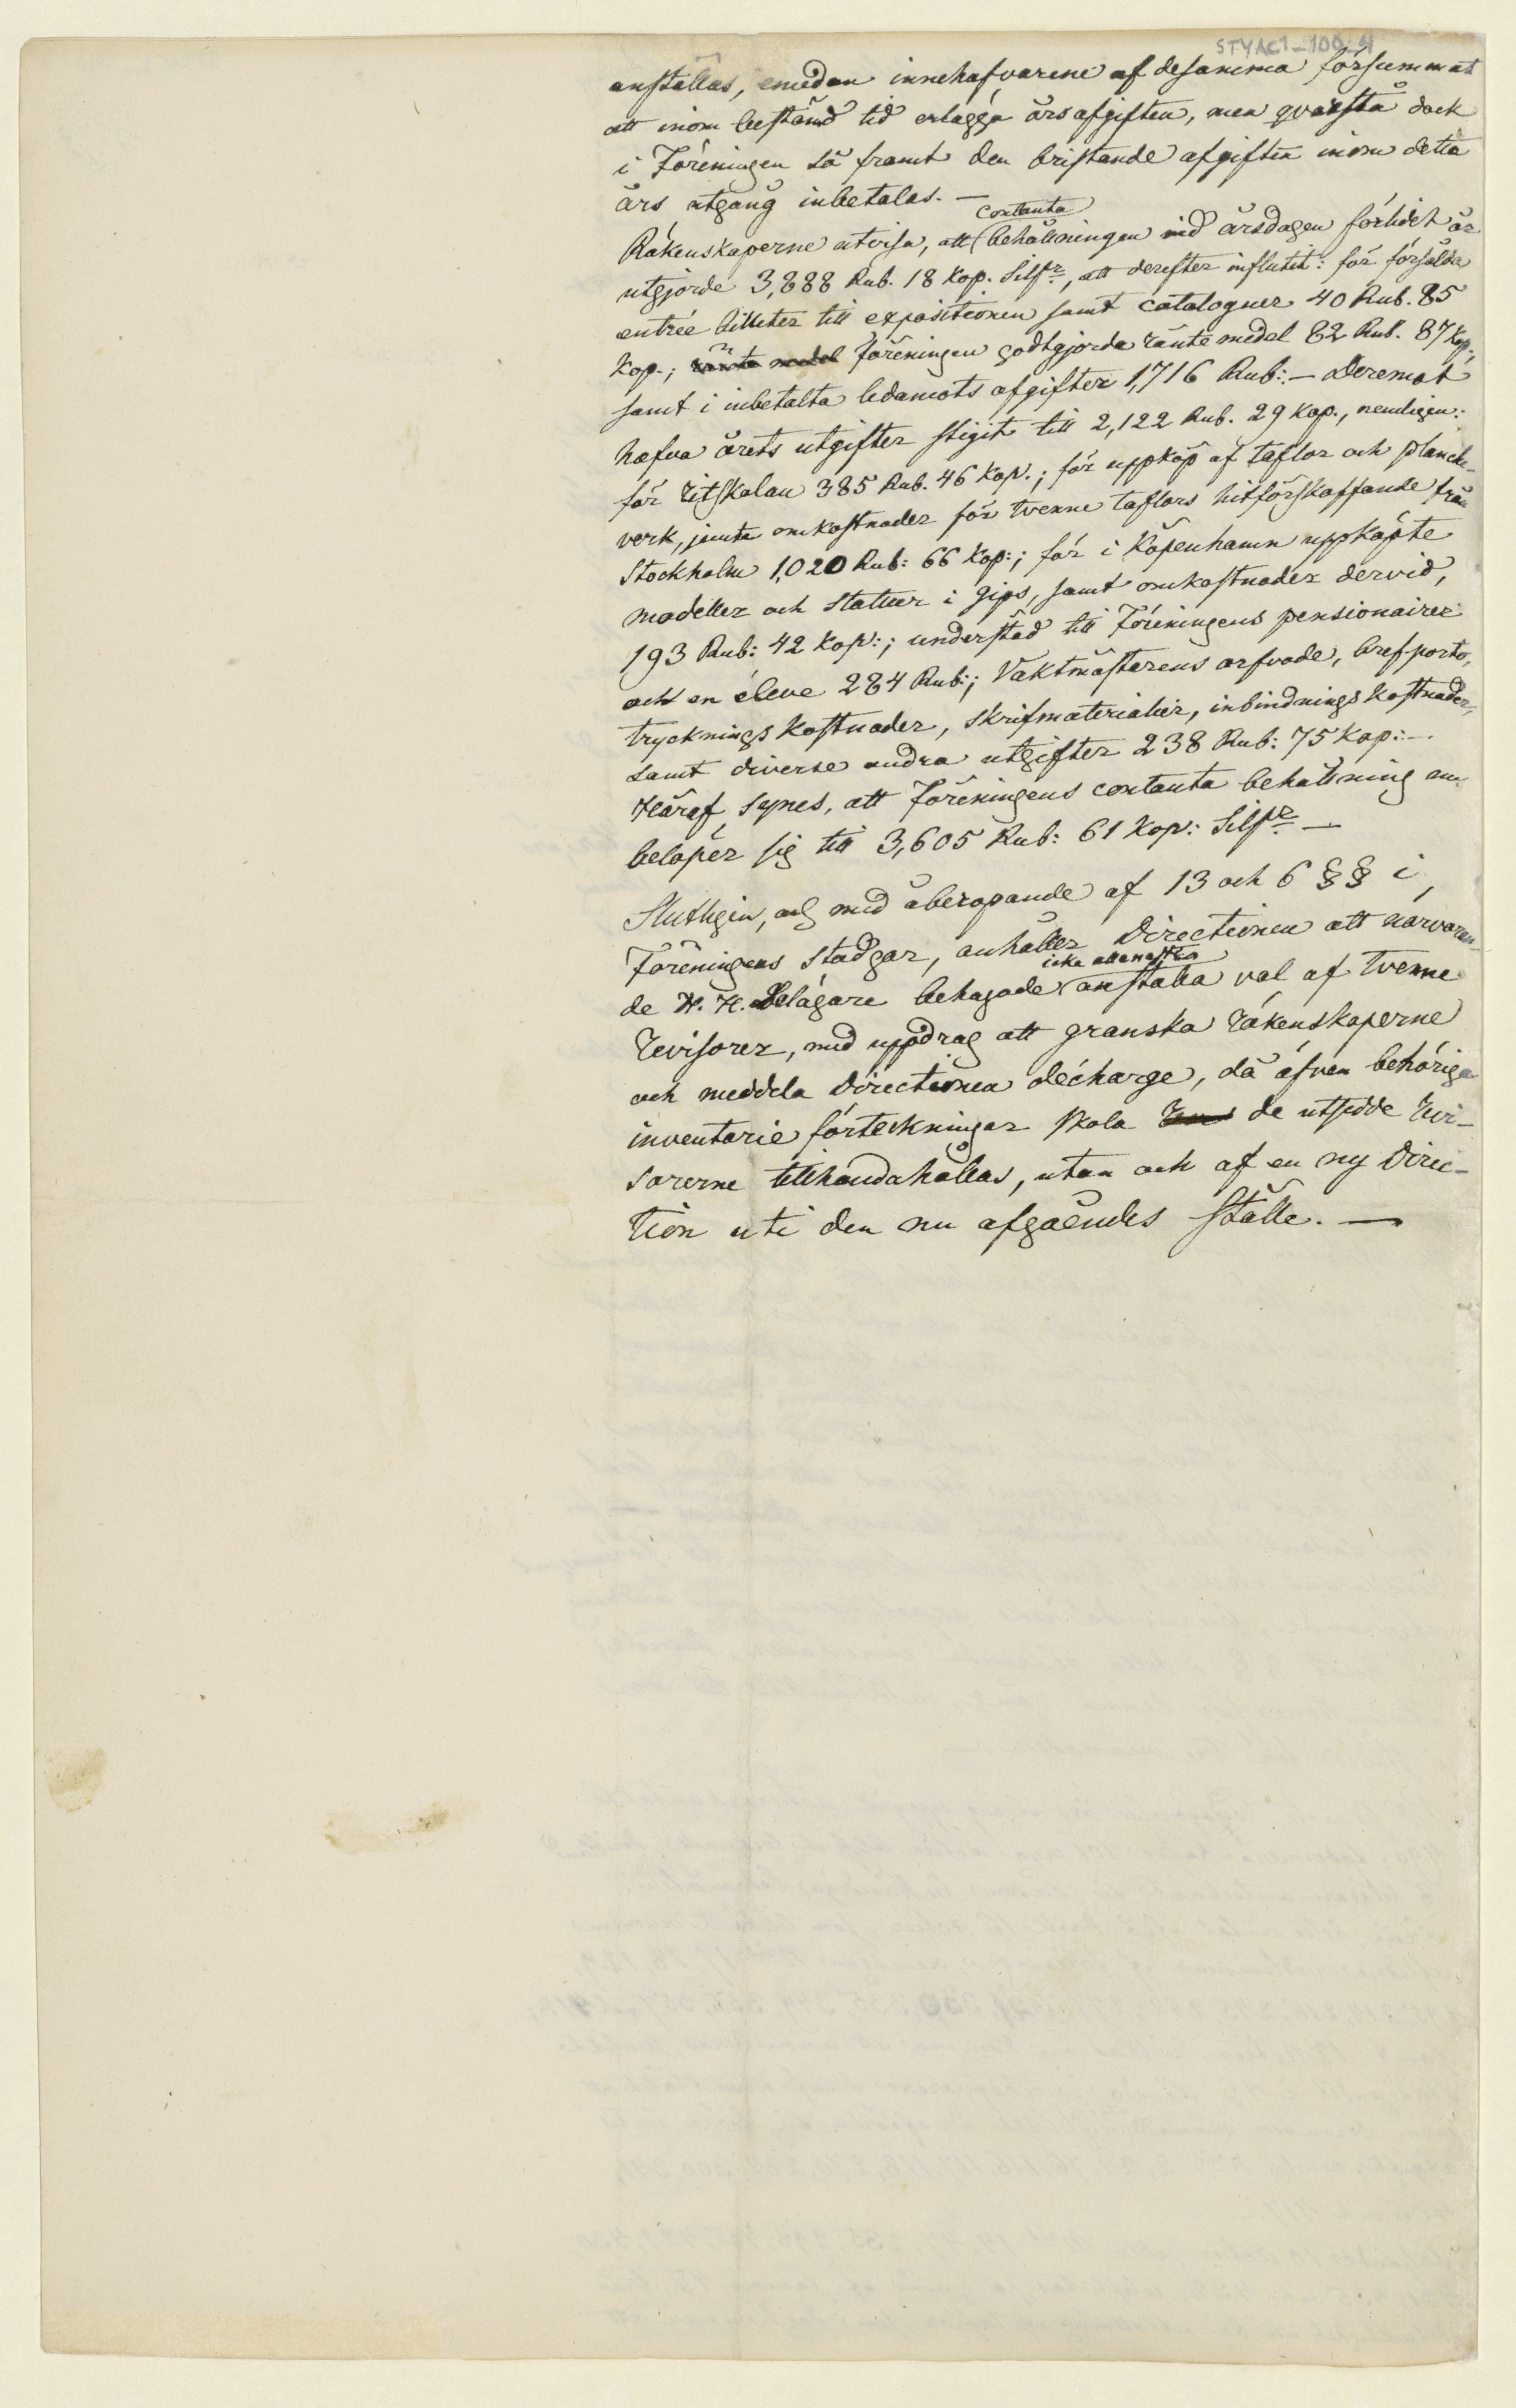 STYAC1-100-4
anställas, emedan innehafvarene af desamma försummat
att inom bestämd tid erlägga årsafgiften, men qvarstå dock
i Föreningen så framt den bristande afgiften inom detta
års utgång inbetalas. —
contanta
Räkenskaperne utvisa, att behållningen vid årsdagen förlidet år
utgjorde 3,888 Rub. 18 Kop. Silfr, att derefter influtit: för försålda
entrée billeter till expositionen samt catalogner 40 Rub. 85
Kop.; ränte medel föreningen godtgjorda räntemedel 82 Rub. 87 Kop.,
samt i inbetalta ledamots afgifter 1,716 Rub: — Deremot
hafva årets utgifter stigit till 2,122 Rub. 29 Kop., nemligen:
för ritskolan 385 Rub. 46 Kop.; för uppköp af taflor och planch-
verk, jemte omkostnader för tvenne taflors hitförskaffande från
Stockholm 1,020 Rub: 66 Kop:; för i Köpenhamn uppköpte
modeller och statuer i gips, samt omkostnader dervid,
193 Rub: 42 Kop:; understöd till Föreningens pensionairer
och en éleve 284 Rub:; Vaktmästarens arfvode, brefporto,
tryckningskostnader, skrifmaterialier, inbindningskostnader,
samt diverse andra utgifter 238 Rub: 75 Kop: —
Häraf synes, att Föreningens contanta behållning nu
belöper sig till 3,605 Rub: 61 Kop: Silfr —
Slutligen, och med åberopande af 13 och 6 §§ i
Föreningens stadgar, anhåller Directionen att närvaran-
icke allenast
de H. H. Delägare behagade anställa val af tvenne
Revisorer, med uppdrag att granska räkenskaperne
och meddela Directionen décharge, då äfven behöriga
inventarie förteckningar skola de utsedde Revi-
sorerne tillhandahållas, utan och af en ny Direc-
tion uti den nu afgåendes ställe. —